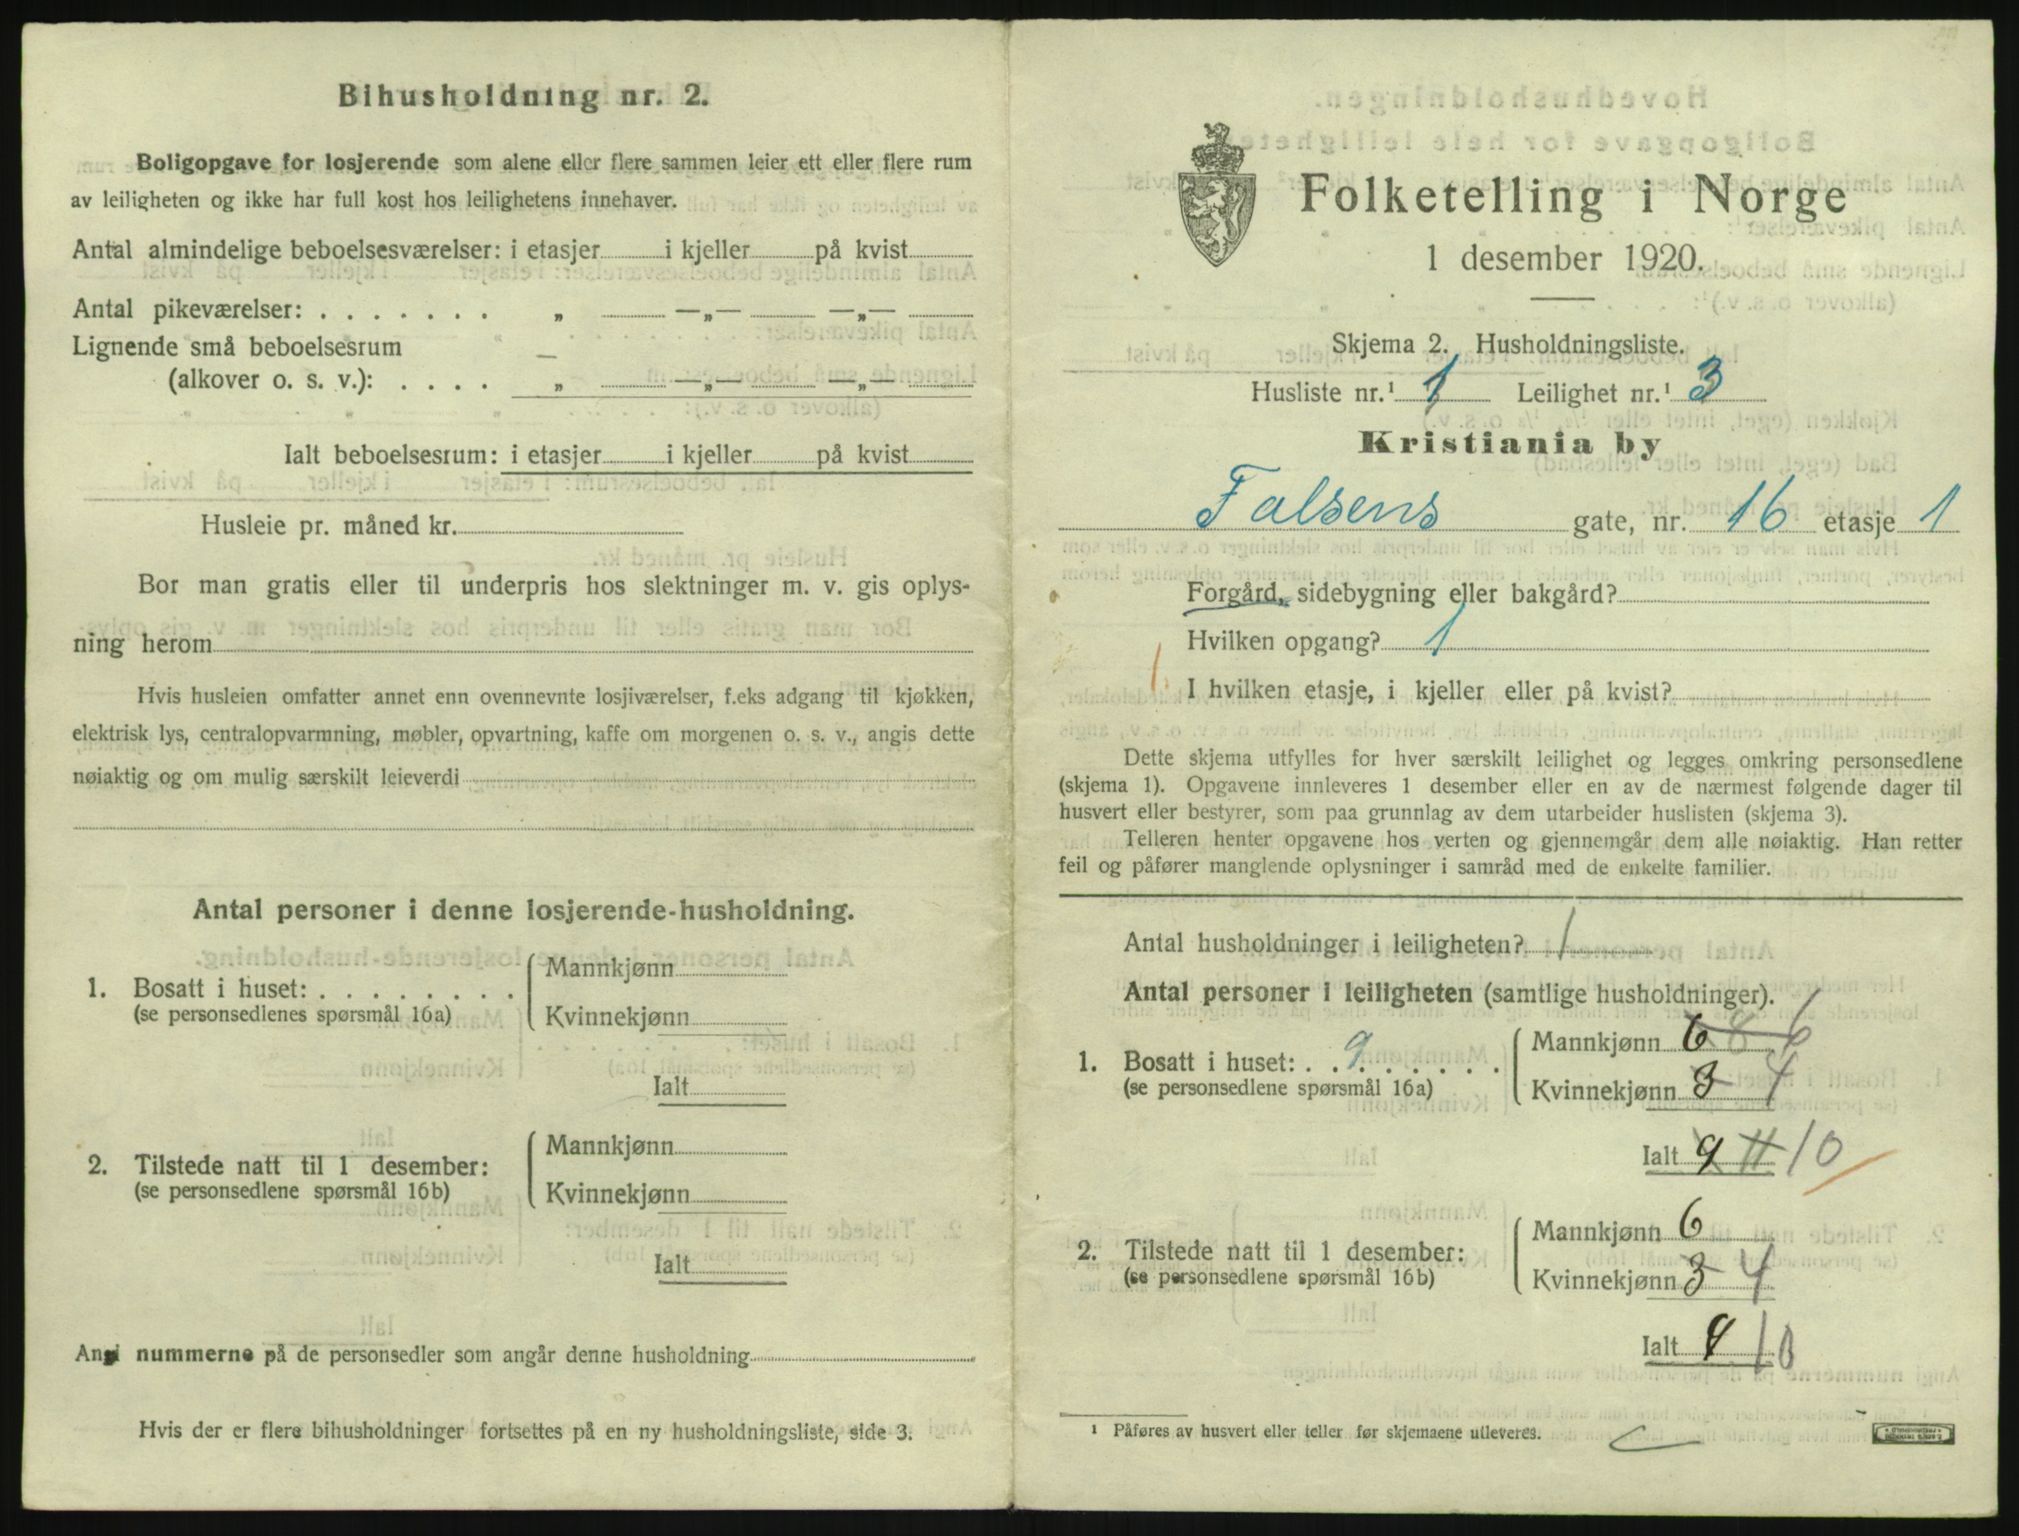 Bihusholdning nr. 2.
Boligopgave for losjerende som alene eller flere sammen leier ett eller flere rum
av leiligheten og ikke har full kost hos leilighetens innehaver.
Antal almindelige beboelsesværelser: i etasjer i kjeller på kvist
Antal pikeværelser: . . . . . . . „ —„— —„—
Lignende små beboelsesrum
(alkover o. s. v.): . . . . „ —„— —„—
Ialt beboelsesrum: i etasjer i kjeller på kvist
Husleie pr. måned kr.
Bor man gratis eller til underpris hos slektninger m. v. gis oplys-
ning herom
Hvis husleien omfatter annet enn ovennevnte losjiværelser, f.eks adgang til kjøkken,
elektrisk lys, centralopvarmning, møbler, opvartning, kaffe om morgenen o. s. v., angis dette
nøiaktig og om mulig særskilt leieverdi
Antal personer i denne losjerende-husholdning.
1. Bosatt i huset: . . . . . . . .
(se personsedlenes spørsmål 16a)
Mannkjønn
Kvinnekjønn
Ialt
2. Tilstede natt til 1 desember:
(se personsedlene spørsmål 16b)
Mannkjønn
Kvinnekjønn
Ialt
Angi nummerne på de personsedler som angår denne husholdning
Hvis der er flere bihusholdninger fortsettes på en ny husholdningsliste, side 3.
Folketelling i Norge
1 desember 1920.
Skjema 2. Husholdningsliste.
Husliste nr.¹ 1 Leilighet nr.¹ 3
Kristiania by
Falsens gate, nr. 16 etasje 1
Forgård, sidebygning eller bakgård?
Hvilken opgang? 1
1 I hvilken etasje, i kjeller eller på kvist?
Dette skjema utfylles for hver særskilt leilighet og legges omkring personsedlene
(skjema 1). Opgavene innleveres 1 desember eller en av de nærmest følgende dager til
husvert eller bestyrer, som paa grunnlag av dem utarbeider huslisten (skjema 3).
Telleren henter opgavene hos verten og gjennemgår dem alle nøiaktig. Han retter
feil og påfører manglende oplysninger i samråd med de enkelte familier.
Antal husholdninger i leiligheten? 1
Antal personer i leiligheten (samtlige husholdninger).
1. Bosatt i huset: . 9 . . . . . .
(se personsedlene spørsmål 16a)
Mannkjønn 6 8 6
Kvinnekjønn 3 4
Ialt 9 11 10
2. Tilstede natt til 1 desember:
(se personsedlene spørsmål 16b)
Mannkjønn 6
Kvinnekjønn 3 4
Ialt 9 10
¹ Påføres av husvert eller teller før skjemaene utleveres.